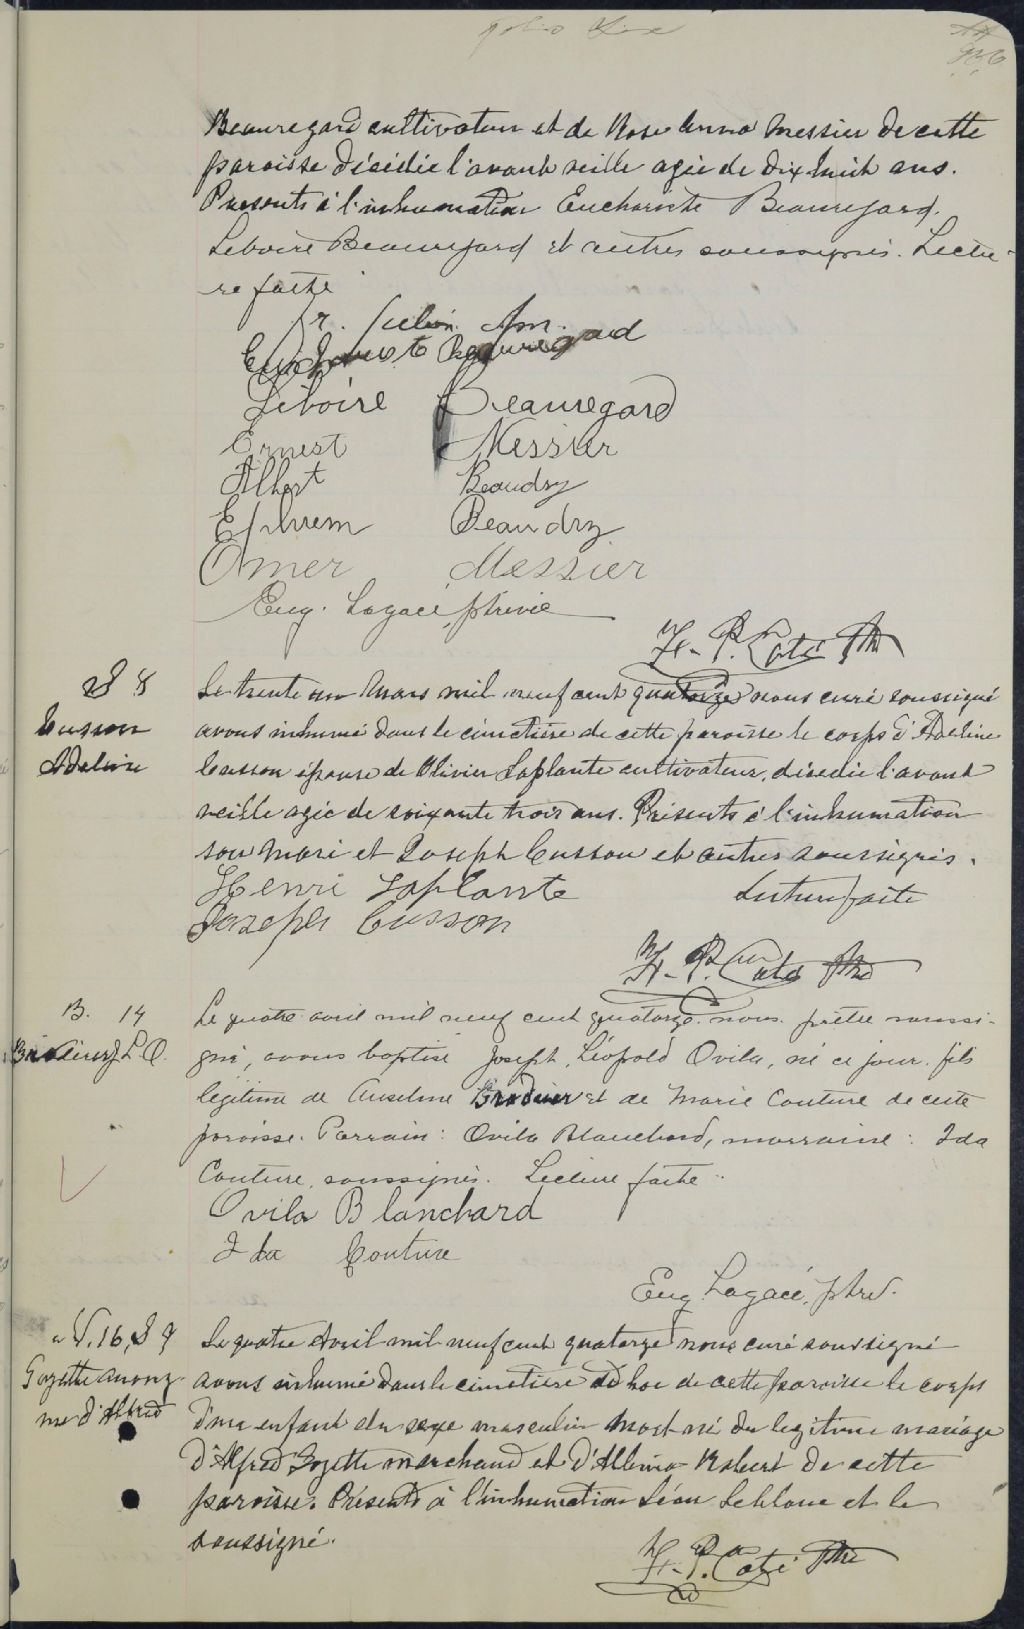 folio six
Beauregard cultivateur et de Rose Anna Messier de cette
paroisse décédée l'avant veille agée de dix huit ans.
Presents à l'inhumation Euchariste Beauregard.
Liboire Beauregard et autres soussignés. Lectu-
re faite
fr. Julien
Euchariste Beauregard
Liboire Beauregard
Ernest Messier
Albert Beaudry
Ephrem Beaudry
Omer Messier
Eug. Lagacé, ptre vic
H. P. Coté Ptre
S 8 Le trente un Mars mil neuf cent quatorze nous curé soussigné
Cusson avons inhumé dans le cimetière de cette paroisse le corps d'Adeline
Adeline Cusson épouse de Olivier Laplante cultivateur, décédée l'avant
veille agée de soixante trois ans. Présents à l'inhumation
son mari et Joseph Cusson et autres soussignés.
Henri Laplante Lecture faite
Joseph Cusson
H. P. Coté Ptre
B. 14 Le quatre avril mil neuf cent quatorze nous prêtre soussi-
Brodeur J. L. O. gné, avons baptisé Joseph, Léopold Ovila, né ce jour, fils
légitime de Anselme Brodeur et de Marie Couture de cette
paroisse. Parrain: Ovila Blanchard, marraine: Ida
Couture, soussignés. Lecture faite
Ovila Blanchard
Ida Couture
Eug Lagacé, ptre v.
V. 16, S 9 Le quatre Avril mil neuf cent quatorze nous curé soussigné
Gozette anony- avons inhumé dans le cimetière ad hoc de cette paroisse le corps
me d'Alfred d'un enfant du sexe masculin mort né du legitime mariage
d'Alfred Gozette marchand et d'Albina Robert de cette
paroisse. Présents à l'inhumation Léon Leblanc et le
soussigné.
H. P. Coté Ptre